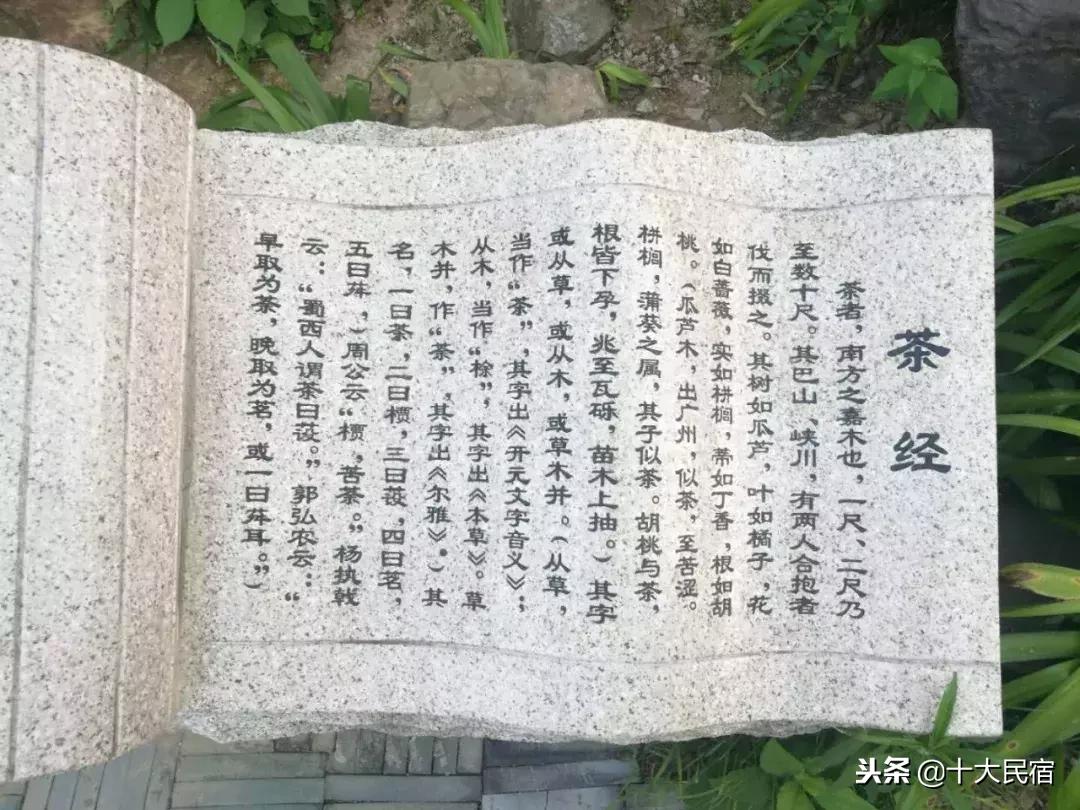 茶经
茶者，南方之嘉木也，一尺、二尺乃
至数十尺。其巴山、峡川，有两人合抱者，
伐而掇之。其树如瓜芦，叶如橘子，花
如白蔷薇，实如栟榈，蒂如丁香，根如胡
桃。（瓜芦木，出广州，似茶，至苦涩。
栟榈，蒲葵之属，其子似茶。胡桃与茶，
根皆下孕，兆至瓦砾，苗木上抽。）其字
或从草，或从木，或草木并。（从草，
当作“茶”，其字出《开元文字音义》；
从木，当作“梌”，其字出《本草》。草
木并，作“荼”，其字出《尔雅》。）其
名，一曰茶，二曰槚，三曰蔎，四曰茗，
五曰荈，（周公云“槚，苦荼。”杨执戟
云：“蜀西人谓茶曰蔎。”郭弘农云：“
早取为茶，晚取为茗，或一曰荈耳。”）
头条 @十大民宿